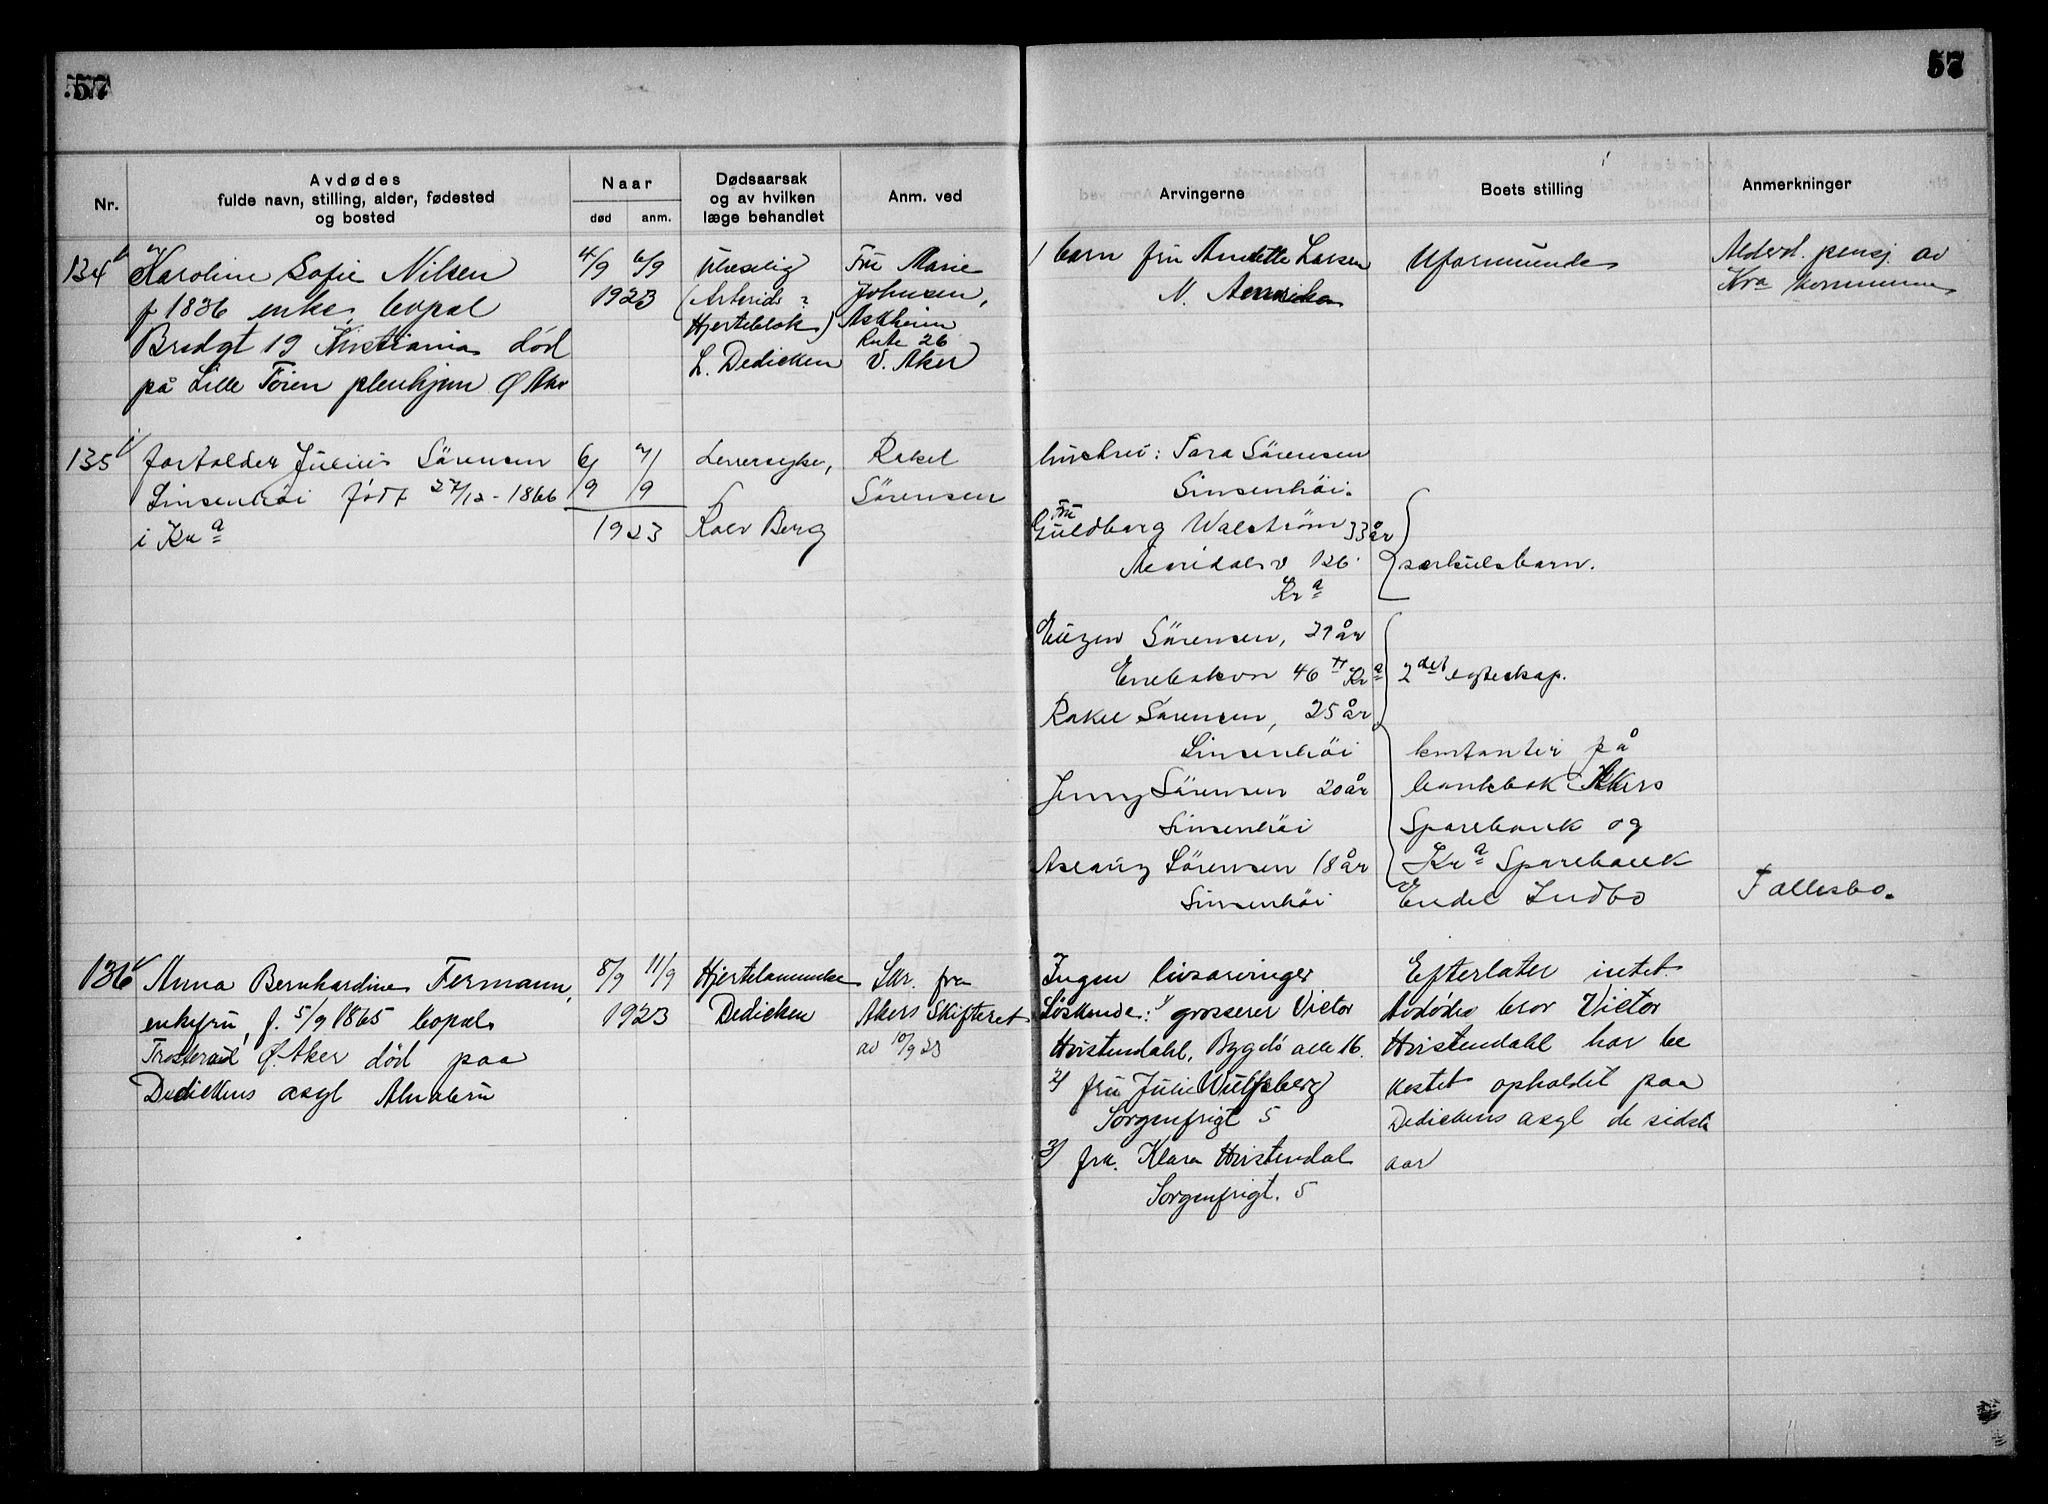 57
57
Nr.
Avdødes
fulde navn, stilling, alder, fødested
og bosted
Naar
død
anm.
Dødsaarsak
og av hvilken
læge behandlet
Anm. ved
Arvingerne
Boets stilling
Anmerkninger
134
Karoline Sofie Nilsen
f 1836 enke, bopæl
Bredgt 19 Kristiania død
på Lille Tøien pleiehjem Ø Aker
4/9
6/9
1923
Ulæselig
(Arterids ?
Hjerteblok)
L. Dedicken
Fru Marie
Johnsen,
Askheim
Rute 26
V. Aker
1 barn fru Anette Larsen
N. Amerika
Uformuende
Alderd. pensj. av
Kra kommune
135
forholder Julius Sörensen
Sinsenhöi född 27/12-1866
i Kra
6/9
7/9
1923
Leversyke,
Roar Berg
Rakel
Sörensen
hustru: Tara Sörensen
Sinsenhöi.
Fru
Guldborg Walström 33 år
Maridalsv 126
Kra
særkulsbarn.
Eugen Sörensen, 29 år
Enebakvn 46 II Kra
2det egteskap.
Rakel Sörensen, 25 år
Sinsenhöi
Jenny Sörensen 20 år
Sinsenhöi
Aslaug Sörensen 18 år
Sinsenhöi
kontanter på
bankbok Akers
Sparebank og
Kra Sparebank
Endel Indbo
Fællesbo.
136
Anna Bernhardine Fermann,
enkefru, f. 5/9 1865 bopæl
Trosterud Ø. Aker død paa
Dedickens asyl Alnabru
8/9
11/9
1923
Hjertelammelse
Dedicken
Skr. fra
Akers Skifteret
av 10/9 23
Ingen livsarvinger
Söskende: 1/ grosserer Victor
Hvistendahl, Bygdö alle 16.
2/ fru Julie Wulfsberg
Sorgenfrigt 5
3/ frk. Klara Hvistendal
Sorgenfrigt. 5
Efterlater intet
Avdødes bror Victor
Hvistendahl har be
kostet opholdet paa
Dedickens asyl de sidste
aar